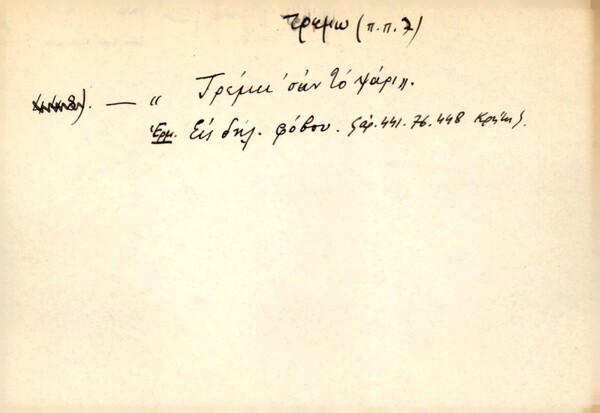 τρέμω (π.π. 2)
— « Τρέμει 'σὰν τὸ ψάρι».
Ἑρμ. Εἰς δήλ. φόβου. (ἀρ. 441. 76. 448 Κρήτης).